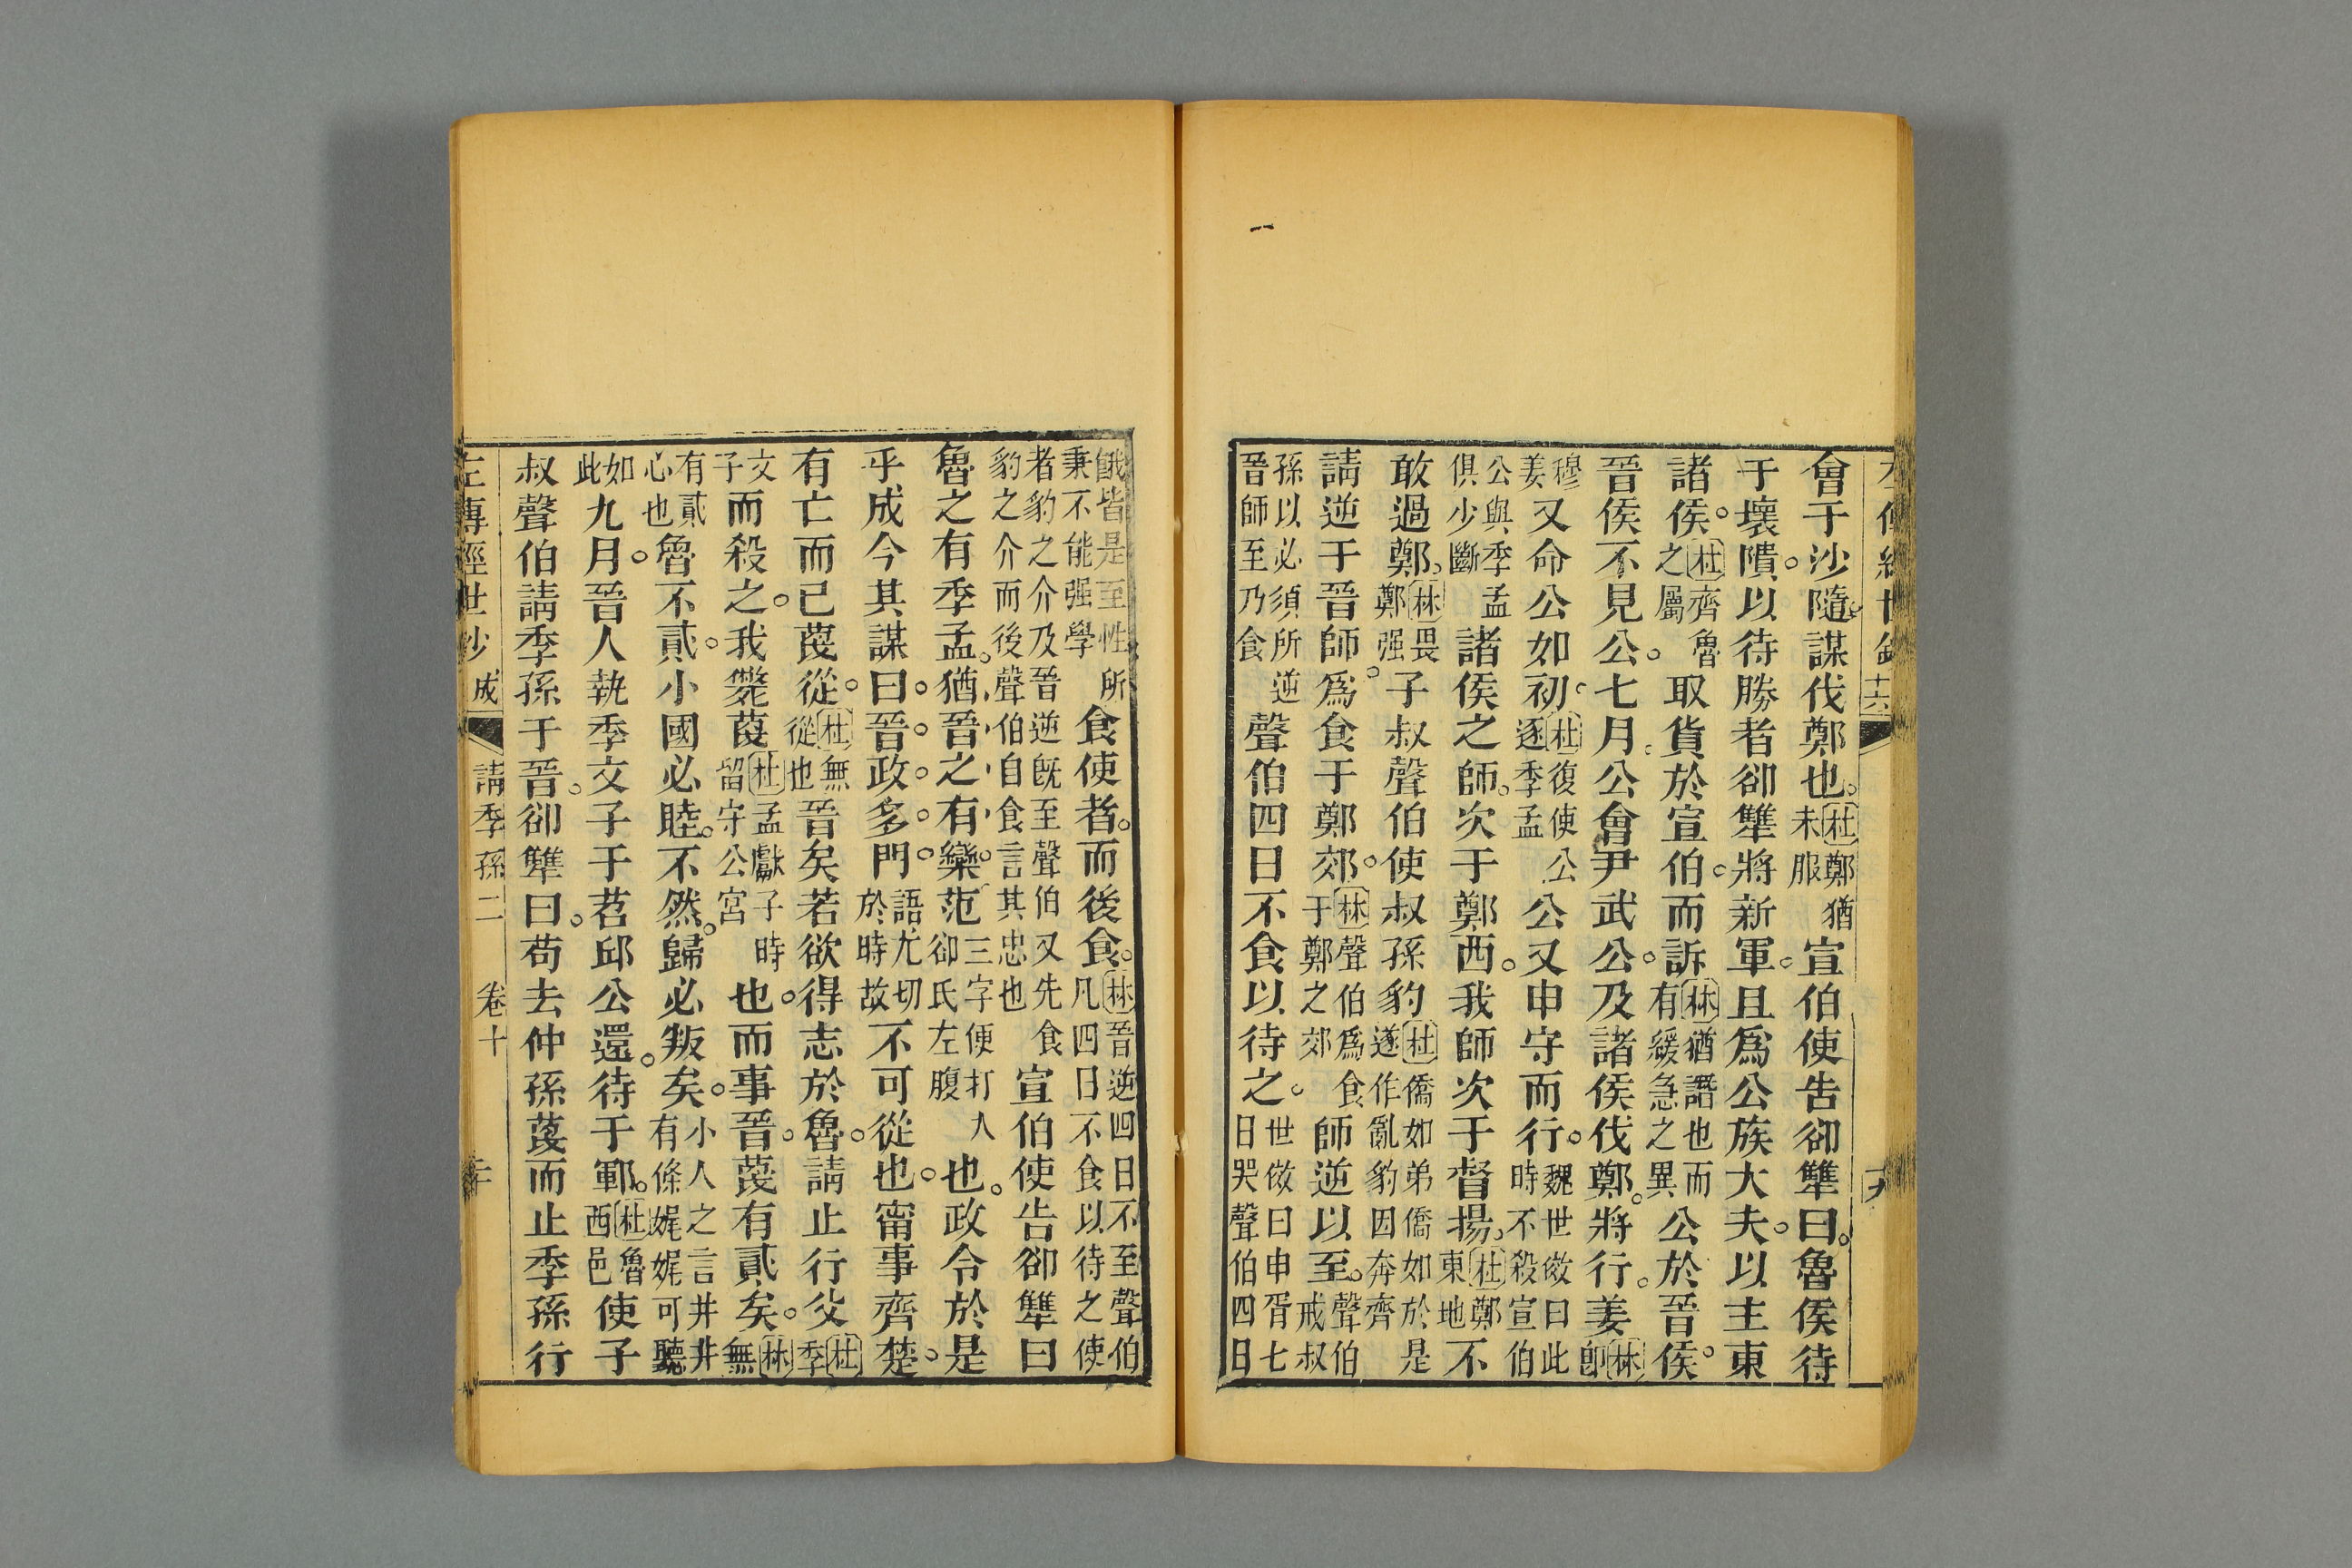 會于沙隨謀伐鄭也杜鄭猶未服宣伯使告郤犨曰魯侯待
于壞隤以待勝者郤犨將新軍且爲公族大夫以主東
諸侯杜齊魯之屬取貨於宣伯而訴林猶譖也而有緩急之異公於晉侯
晉侯不見公七月公會尹武公及諸侯伐鄭將行姜林卽
穆姜又命公如初杜復使公逐季孟公又申守而行魏世傚曰此時不殺宣伯
公與季孟俱少斷諸侯之師次于鄭西我師次于督揚杜鄭東地不
敢過鄭林畏鄭强子叔聲伯使叔孫豹杜僑如弟僑如於是遂作亂豹因奔齊
請逆于晉師爲食于鄭郊林聲伯爲食于鄭之郊師逆以至聲伯戒叔
孫以必須所逆晉師至乃食聲伯四日不食以待之世傚曰申胥七日哭聲伯四日
餓皆是至性所秉不能强學食使者而後食林晉逆四日不至聲伯凡四日不食以待之使
者豹之介及晉逆旣至聲伯又先食豹之介而後聲伯自食言其忠也宣伯使告郤犨曰
魯之有季孟猶晉之有欒范三字便打入郤氏左腹也政令於是
乎成今其謀曰晉政多門語尤切於時故不可從也甯事齊楚
有亡而已蔑從杜無從也晉矣若欲得志於魯請止行父杜季
文子而殺之我斃蔑杜孟獻子時留守公宮也而事晉蔑有貳矣林無
有貳心也魯不貳小國必睦不然歸必叛矣小人之言井井有條娓娓可聽
如此九月晉人執季文子于苕邱公還待于鄆杜魯西邑使子
叔聲伯請季孫于晉郤犨曰苟去仲孫蔑而止季孫行
左傳經世鈔 成 請季孫二 卷十